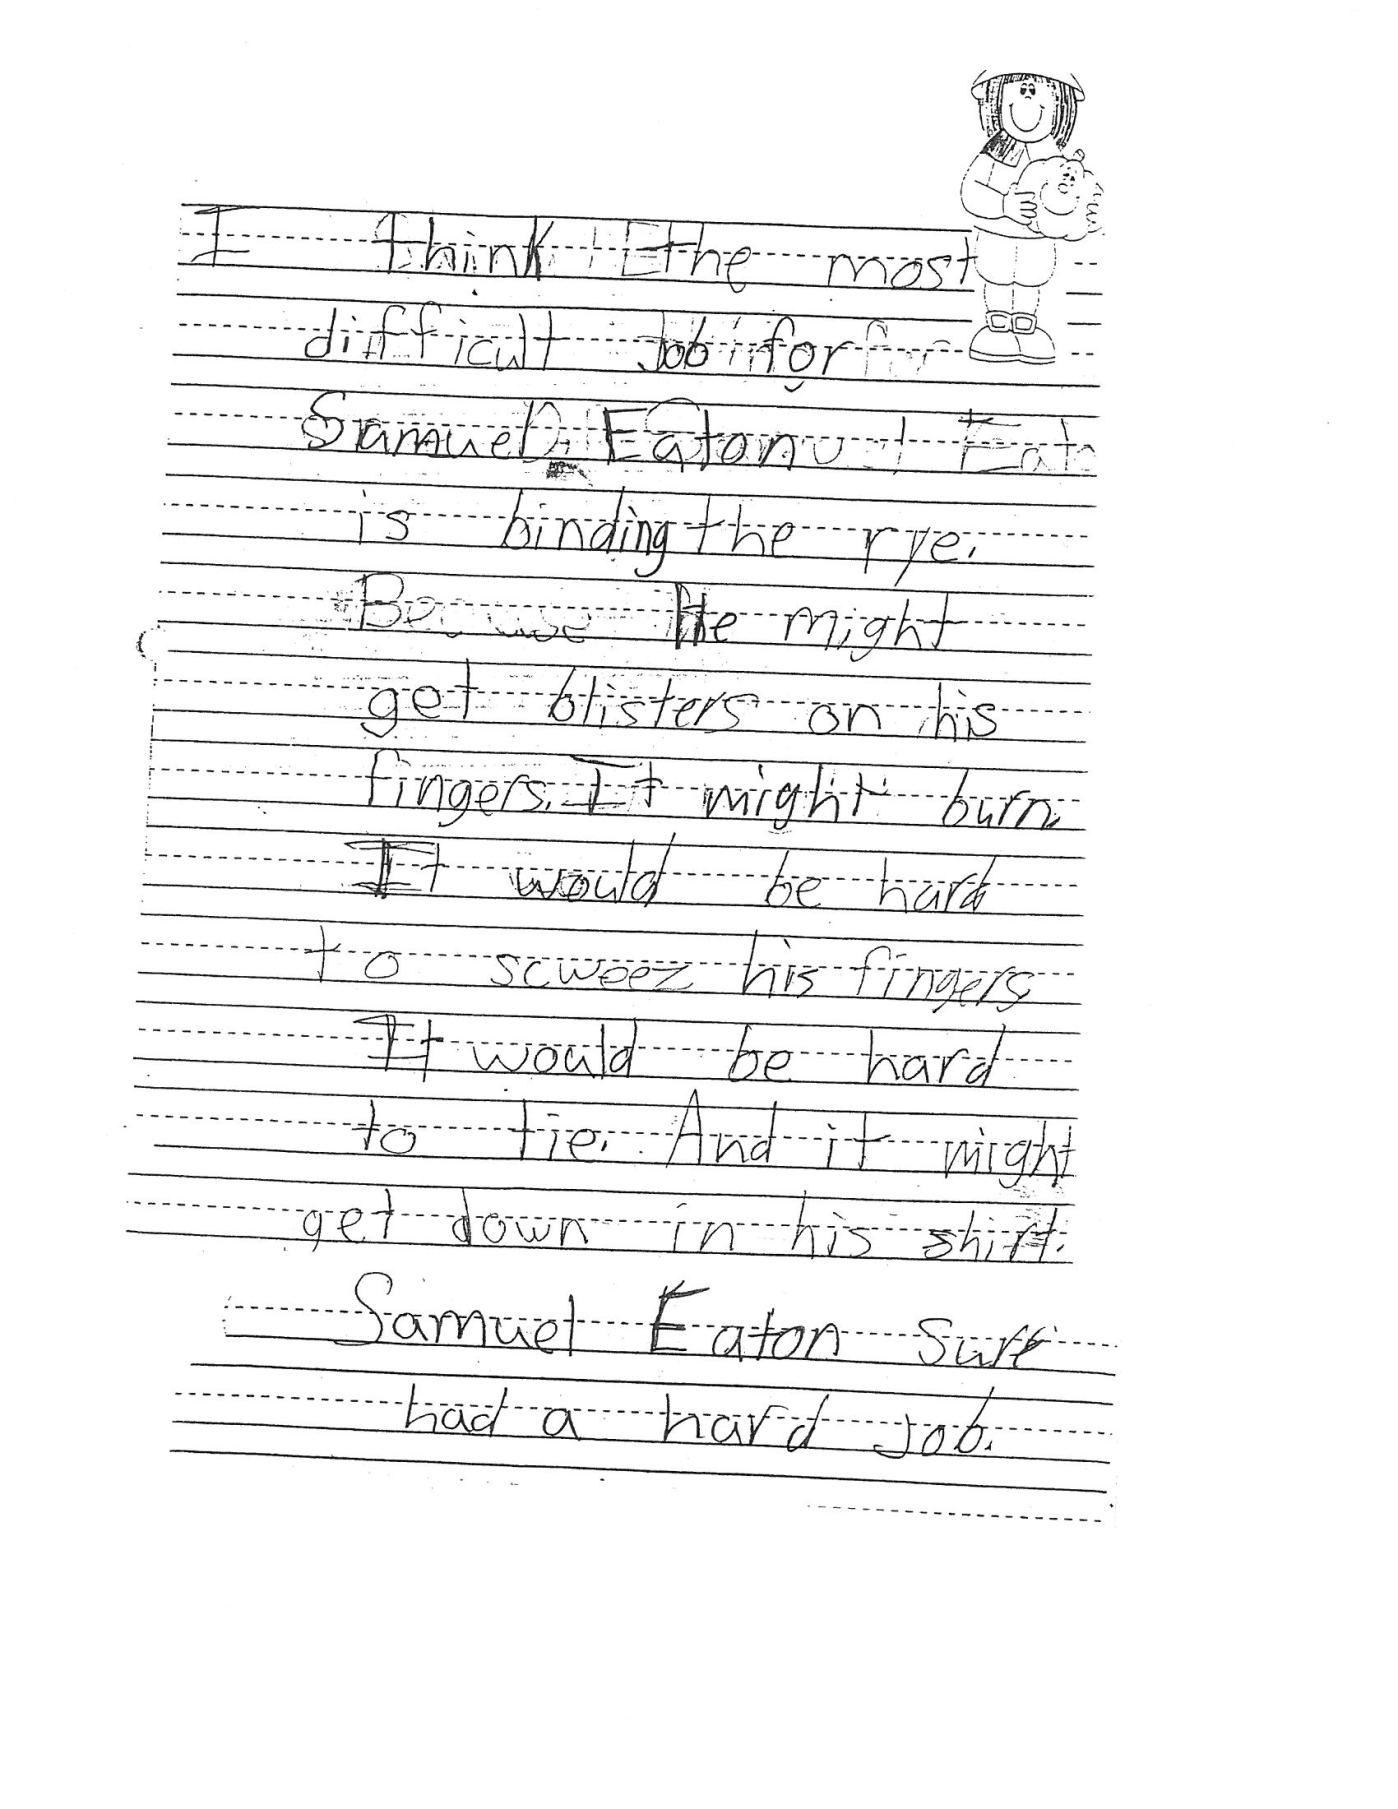 I think the most
difficult Job for
Samuel Eaton
is binding the rye.
He might
get blisters on his
fingers. It might burn.
It would be hard
to scweez his fingers
It would be hard
to tie. And it might
get down in his shirt.
Samuel Eaton sure
had a hard Job.